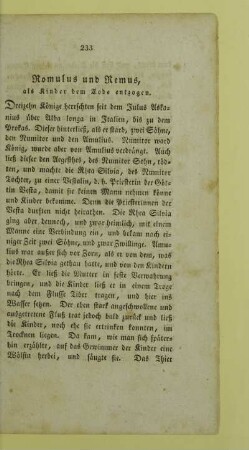 233
Romulus und Remus,
als Kinder dem Tode entzogen.
Dreizehn Könige herrschten seit dem Julus Aska-
nius über Alba longa in Italien, bis zu dem
Prokas. Dieser hinterließ, als er starb, zwei Söhne,
den Numitor und den Amulius. Numitor ward
König, wurde aber von Amulius verdrängt. Auch
ließ dieser den Aegesthes, des Numitor Sohn, töd-
ten, und machte die Rhea Silvia, des Numitor
Tochter, zu einer Vestalin, d. h. Priesterin der Göt-
tin Vesta, damit sie keinen Mann nehmen könne
und Kinder bekomme. Denn die Priesterinnen der
Vesta durften nicht heirathen. Die Rhea Silvia
ging aber dennoch, und zwar heimlich, mit einem
Manne eine Verbindung ein, und bekam nach ei-
niger Zeit zwei Söhne, und zwar Zwillinge. Amu-
lius war außer sich vor Zorn, als er von dem, was
die Rhea Silvia gethan hatte, und von den Kindern
hörte. Er ließ die Mutter in feste Verwahrung
bringen, und die Kinder ließ er in einem Troge
nach dem Flusse Tiber tragen, und hier ins
Wasser setzen. Der eben stark angeschwollene und
ausgetretene Fluß trat jedoch bald zurück und ließ
die Kinder, noch ehe sie ertrinken konnten, im
Trocknen liegen. Da kam, wie man sich späters-
hin erzählte, auf das Gewimmer der Kinder eine
Wölfin herbei, und säugte sie. Das Thier